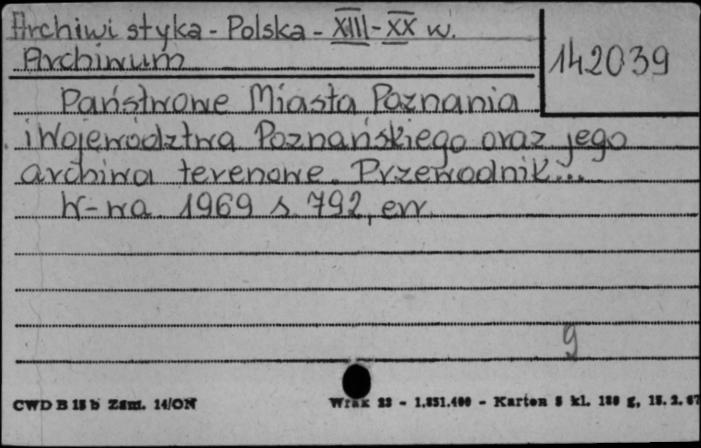 Archiwistyka - Polska - XIII - XX w.
Archiwum
142039
Państwowe Miasta Poznania
i Województwa Poznańskiego oraz jego
archiwa terenowe. Przewodnik...
W-wa 1969 s. 792, err.
9
CWD B 15 b Zam. 14/ON
Wrak 23 - 1,831.400 - Karton 5 kl. 180 g, 15. 2. 67